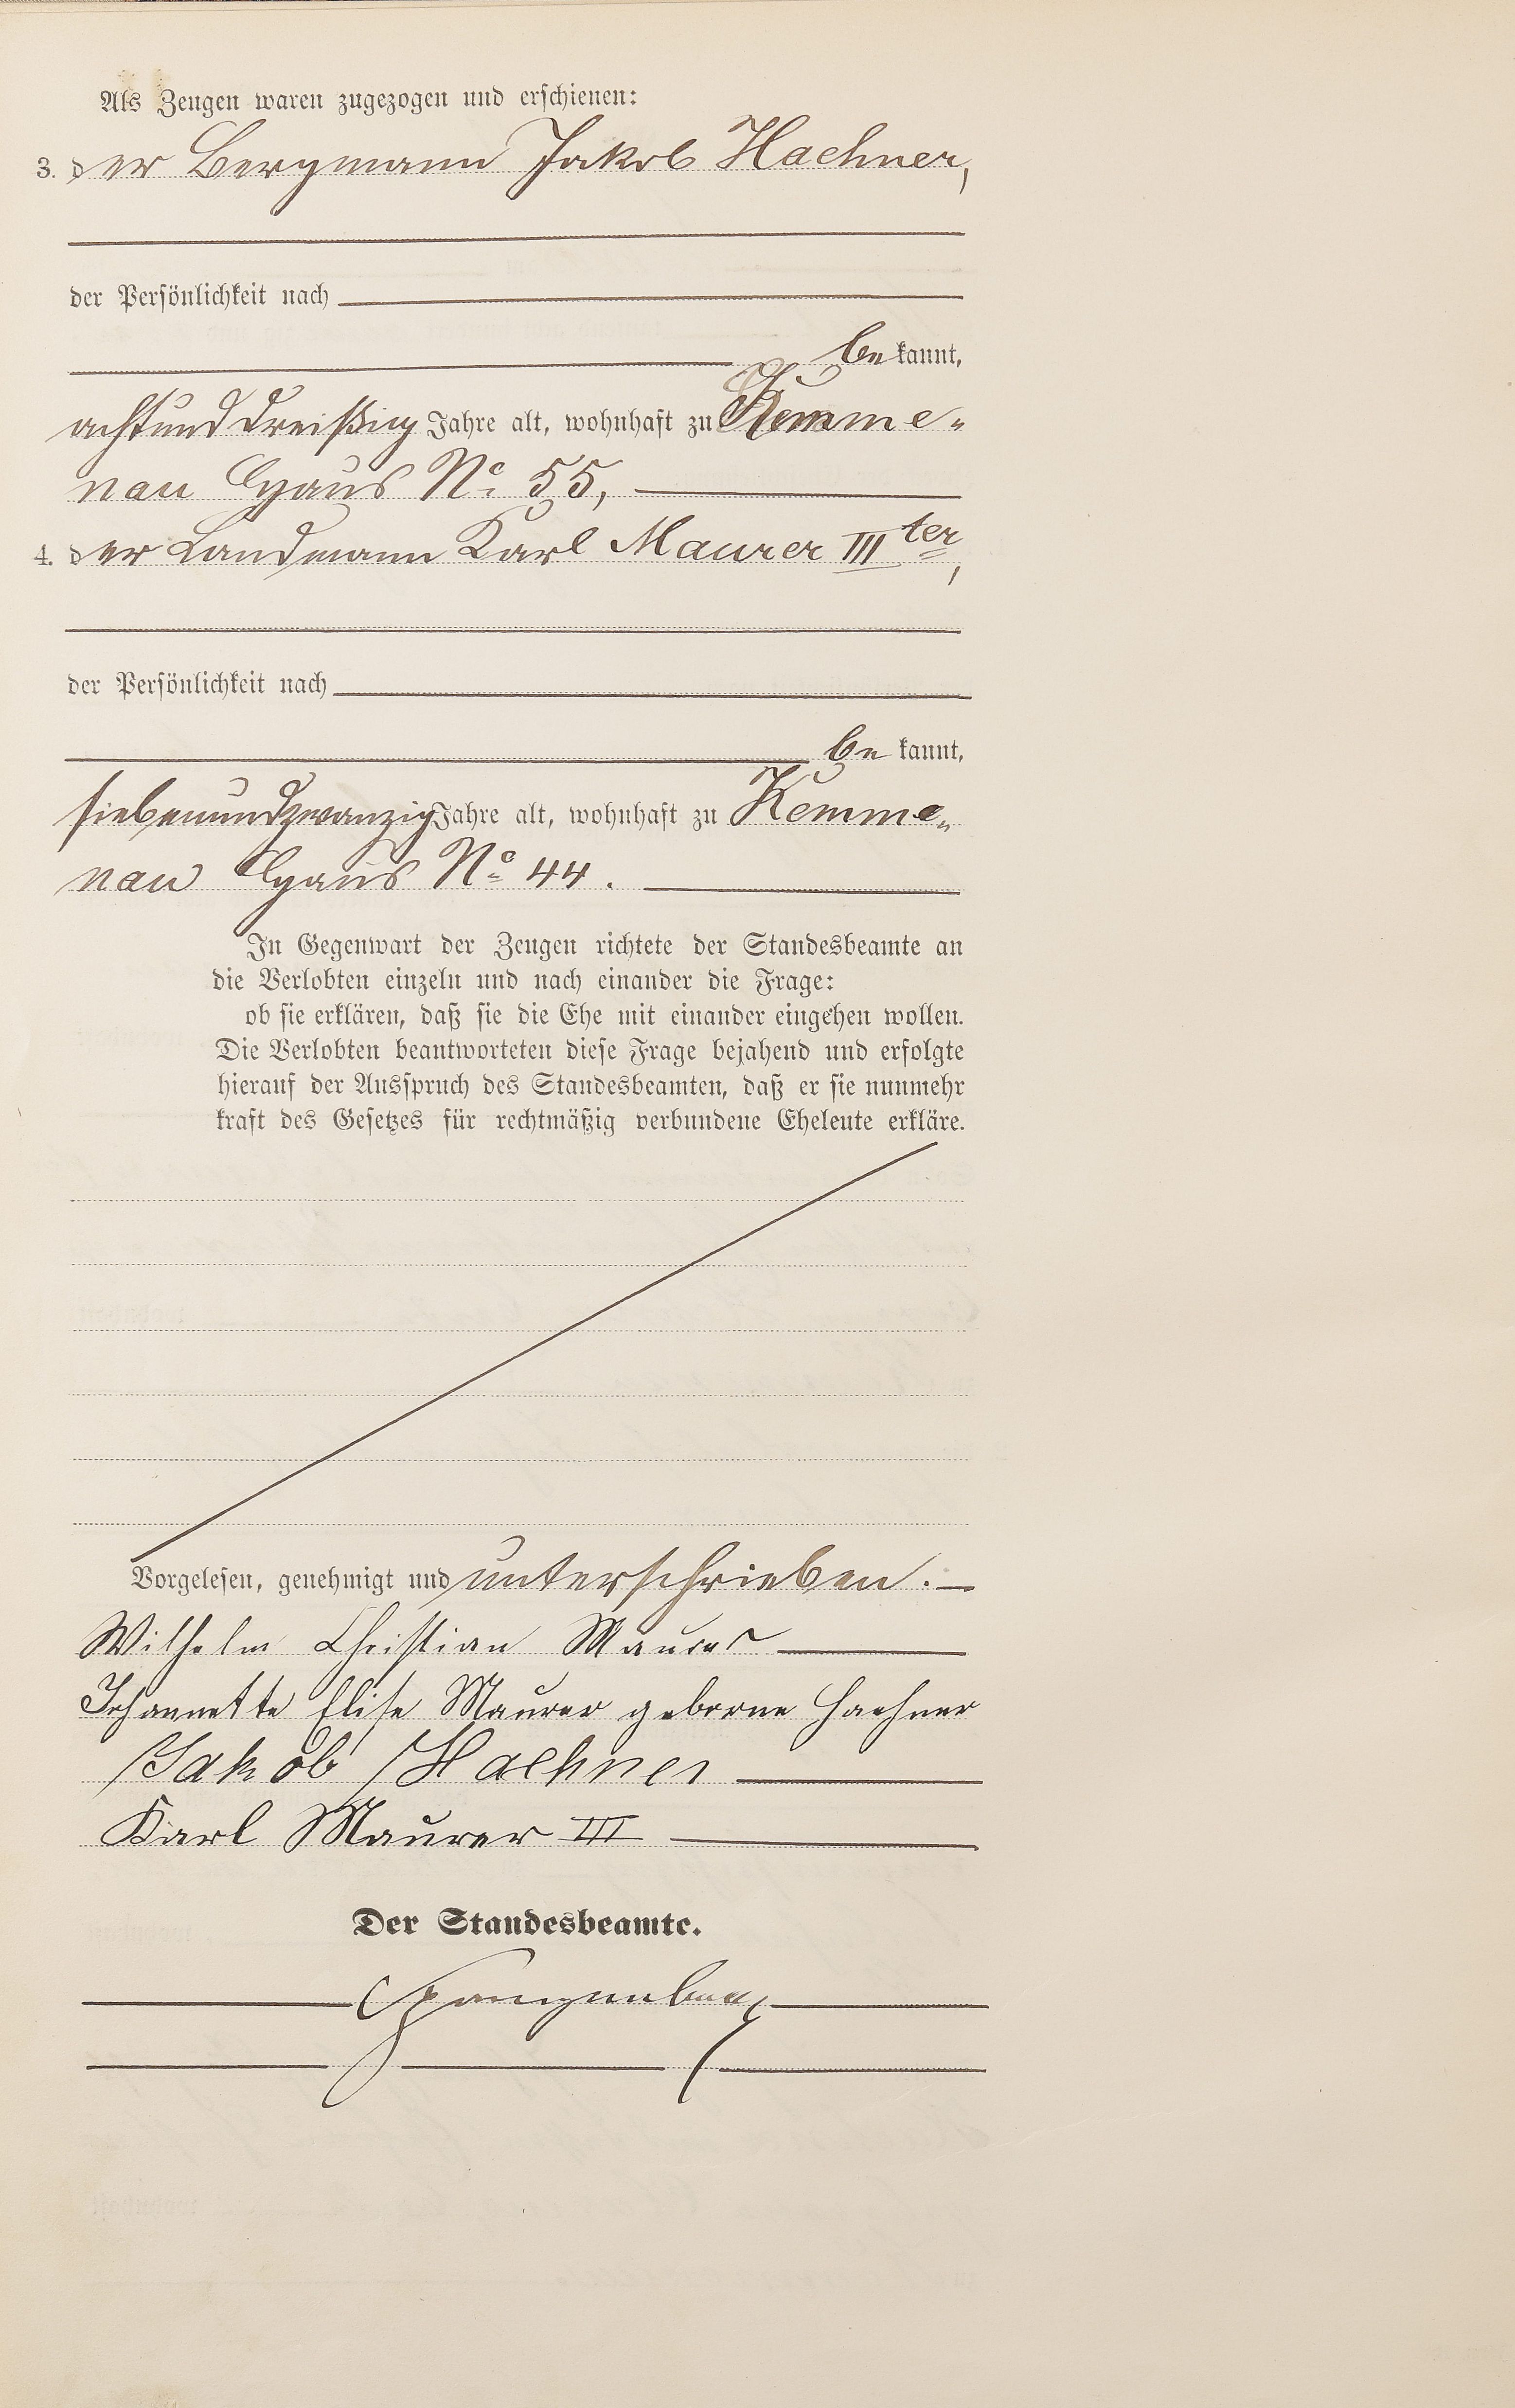 Als Zeugen waren zugezogen und erschienen:
3. der Bergmann Jakob Haehner,
der Persönlichkeit nach
be kannt,
achtunddreißig Jahre alt, wohnhaft zu Kemme-
nau Haus No 55,
4. der Landmann Karl Maurer IIIter,
der Persönlichkeit nach
be kannt,
siebenundzwanzig Jahre alt, wohnhaft zu Kemme-
nau Haus No 44.
In Gegenwart der Zeugen richtete der Standesbeamte an
die Verlobten einzeln und nach einander die Frage:
ob sie erklären, daß sie die Ehe mit einander eingehen wollen.
Die Verlobten beantworteten diese Frage bejahend und erfolgte
hierauf der Ausspruch des Standesbeamten, daß er sie nunmehr
kraft des Gesetzes für rechtmäßig verbundene Eheleute erkläre.
Vorgelesen, genehmigt und unterschrieben.
Wilhelm Christian Maurer
Johannette Elise Maurer geborne Haehner
Jakob Haehner
Karl Maurer III
Der Standesbeamte.